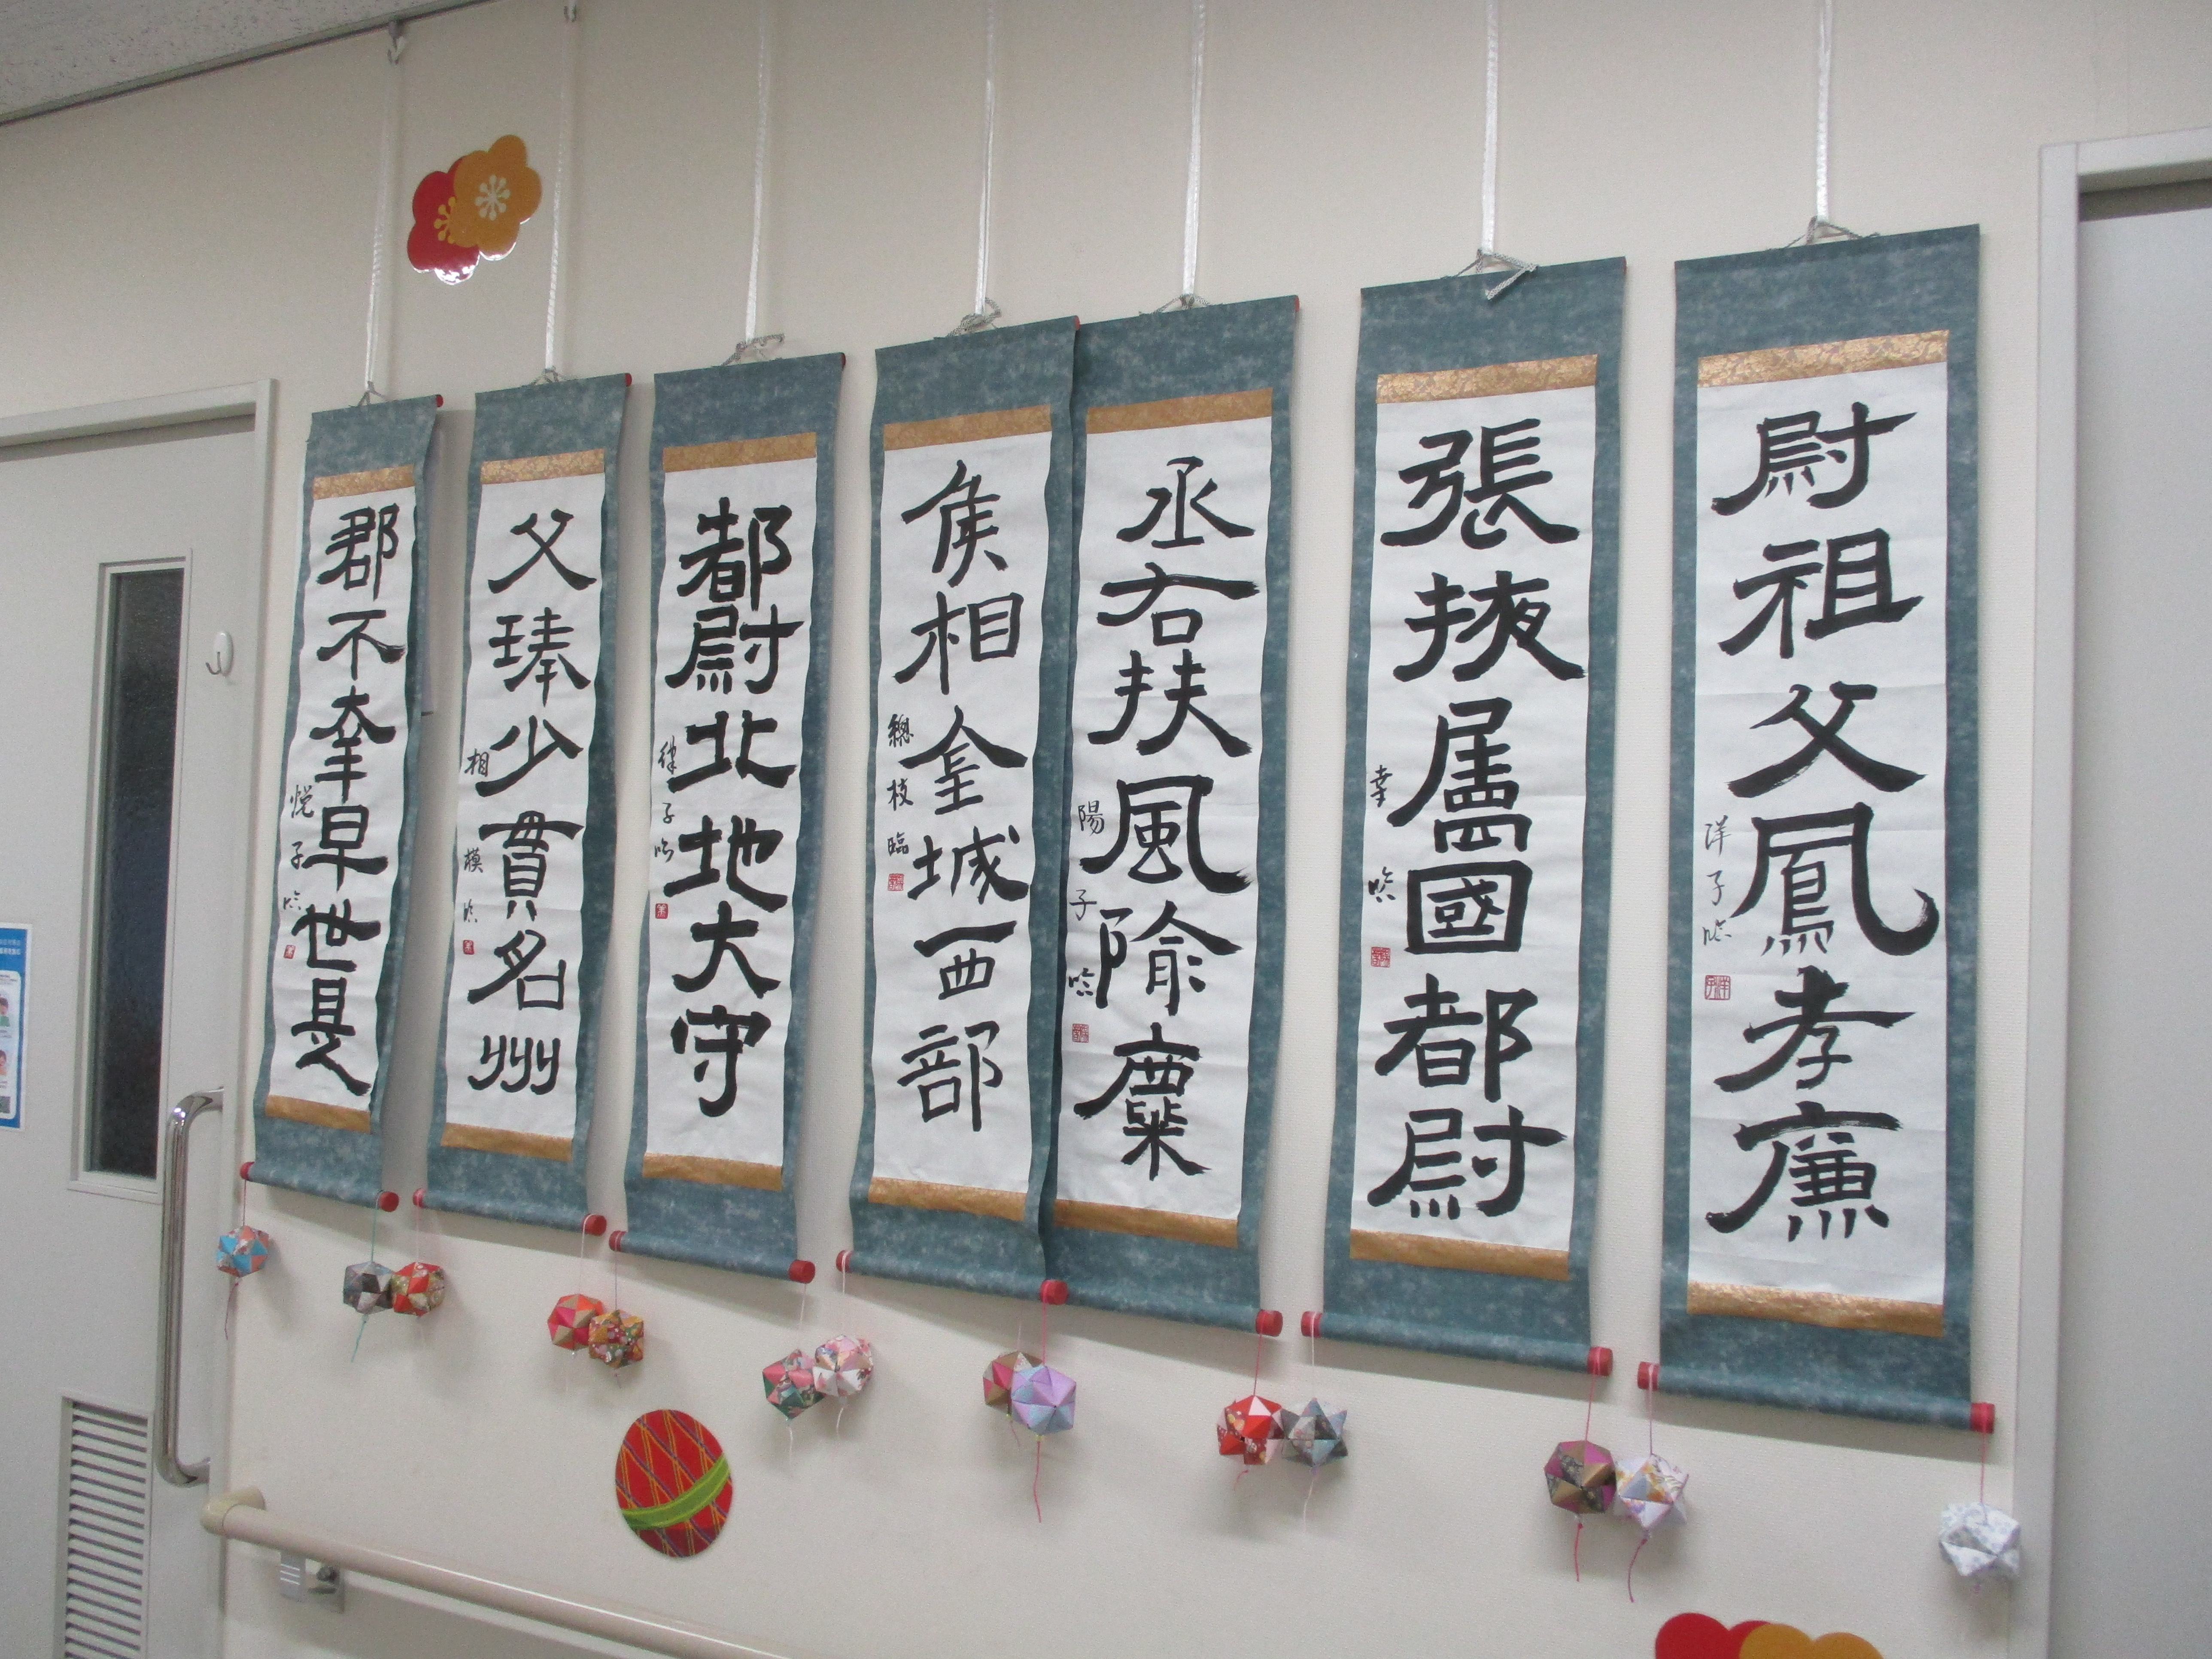 尉祖父鳳孝廉
洋子臨
張掖屬國都尉
幸臨
丞右扶風隃麋
陽子臨
侯相金城西部
總枝臨
都尉北地大守
律子臨
父琫少貫名州
相模臨
郡不幸早世是
悦子臨